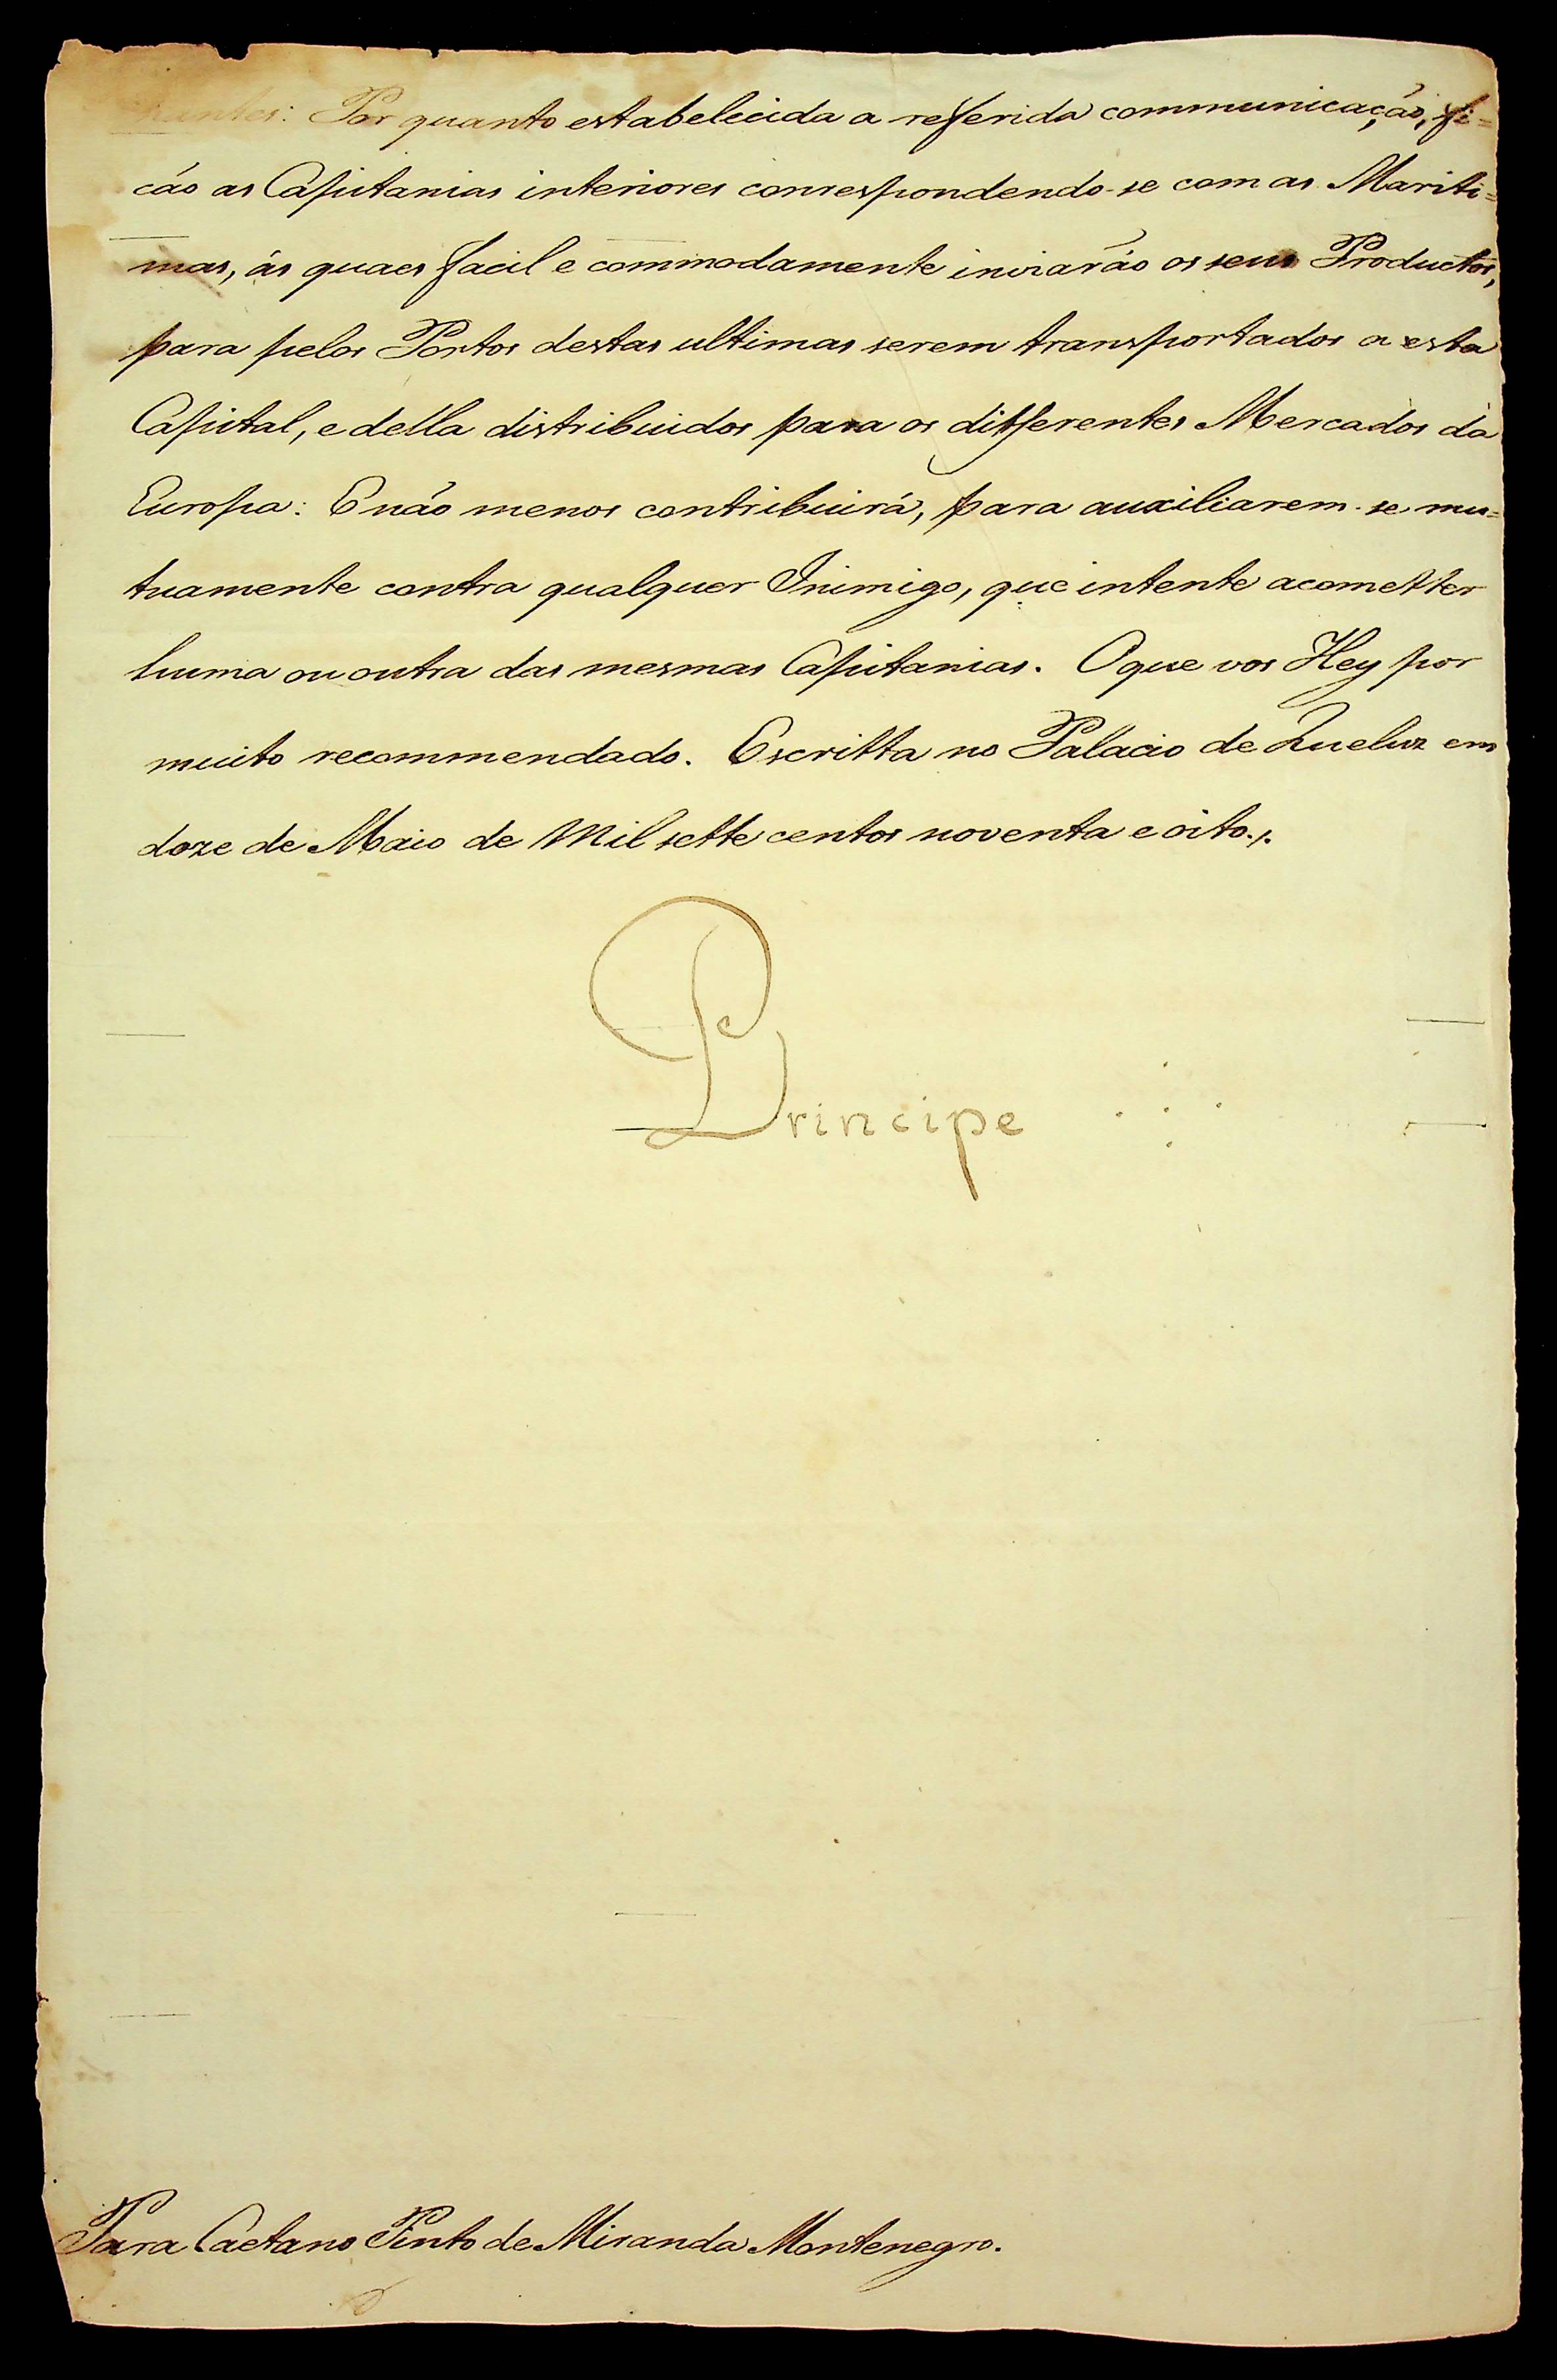 Por quanto estabelecida a referida communicação, fi=
cáo as Capitanias interiores correspondendo-se com as Mariti=
mas, ás quaes facil e commodamente inviaráõ os seus Productos,
para pelos Portos destas ultimas serem transportados a esta
Capital, e della distribuidos para os differentes Mercados da
Europa: E náo menos contribuirá, para auxiliarem-se mu=
tuamente contra qualquer Inimigo, que intente acometter
huma ou outra das mesmas Capitanias. O que vos Hey por
muito recommendado. Escritta no Palacio de Queluz em
doze de Maio de Mil sette centos noventa e oito./.
Principe
Para Caetano Pinto de Miranda Montenegro.